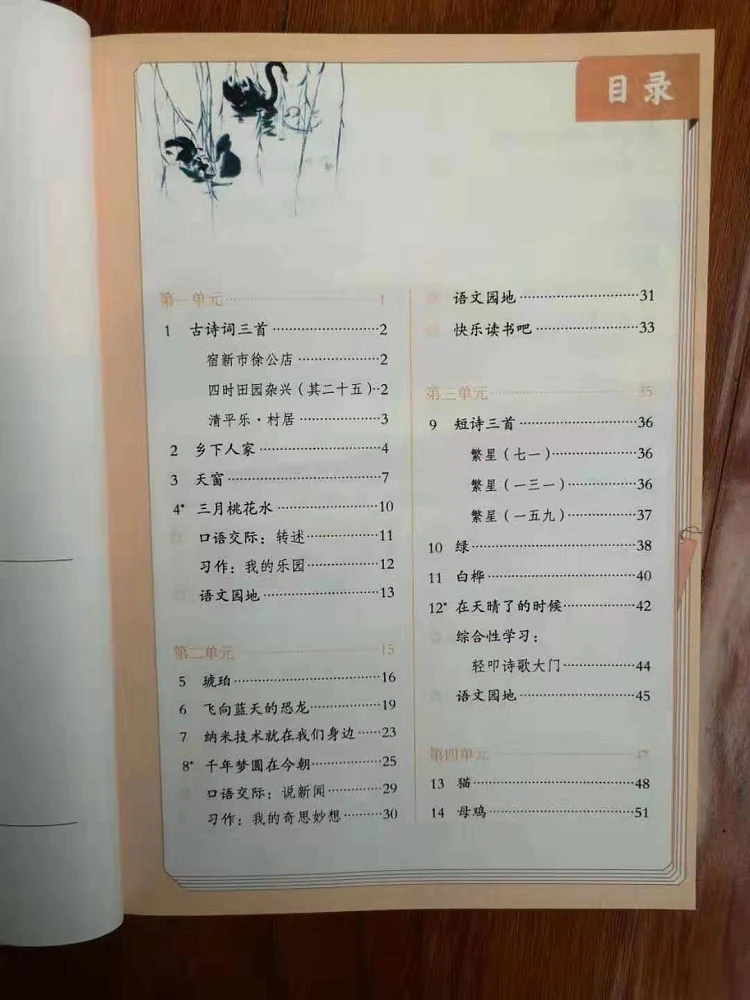 目录
第一单元……1
1 古诗词三首……2
宿新市徐公店……2
四时田园杂兴（其二十五）··2
清平乐·村居……3
2 乡下人家……4
3 天窗……7
4* 三月桃花水……10
口语交际：转述……11
习作：我的乐园……12
语文园地……13
第二单元……15
5 琥珀……16
6 飞向蓝天的恐龙……19
7 纳米技术就在我们身边……23
8* 千年梦圆在今朝……25
口语交际：说新闻……29
习作：我的奇思妙想……30
语文园地……31
快乐读书吧……33
第三单元……35
9 短诗三首……36
繁星（七一）……36
繁星（一三一）……36
繁星（一五九）……37
10 绿……38
11 白桦……40
12* 在天晴了的时候……42
综合性学习：
轻叩诗歌大门……44
语文园地……45
第四单元……47
13 猫……48
14 母鸡……51